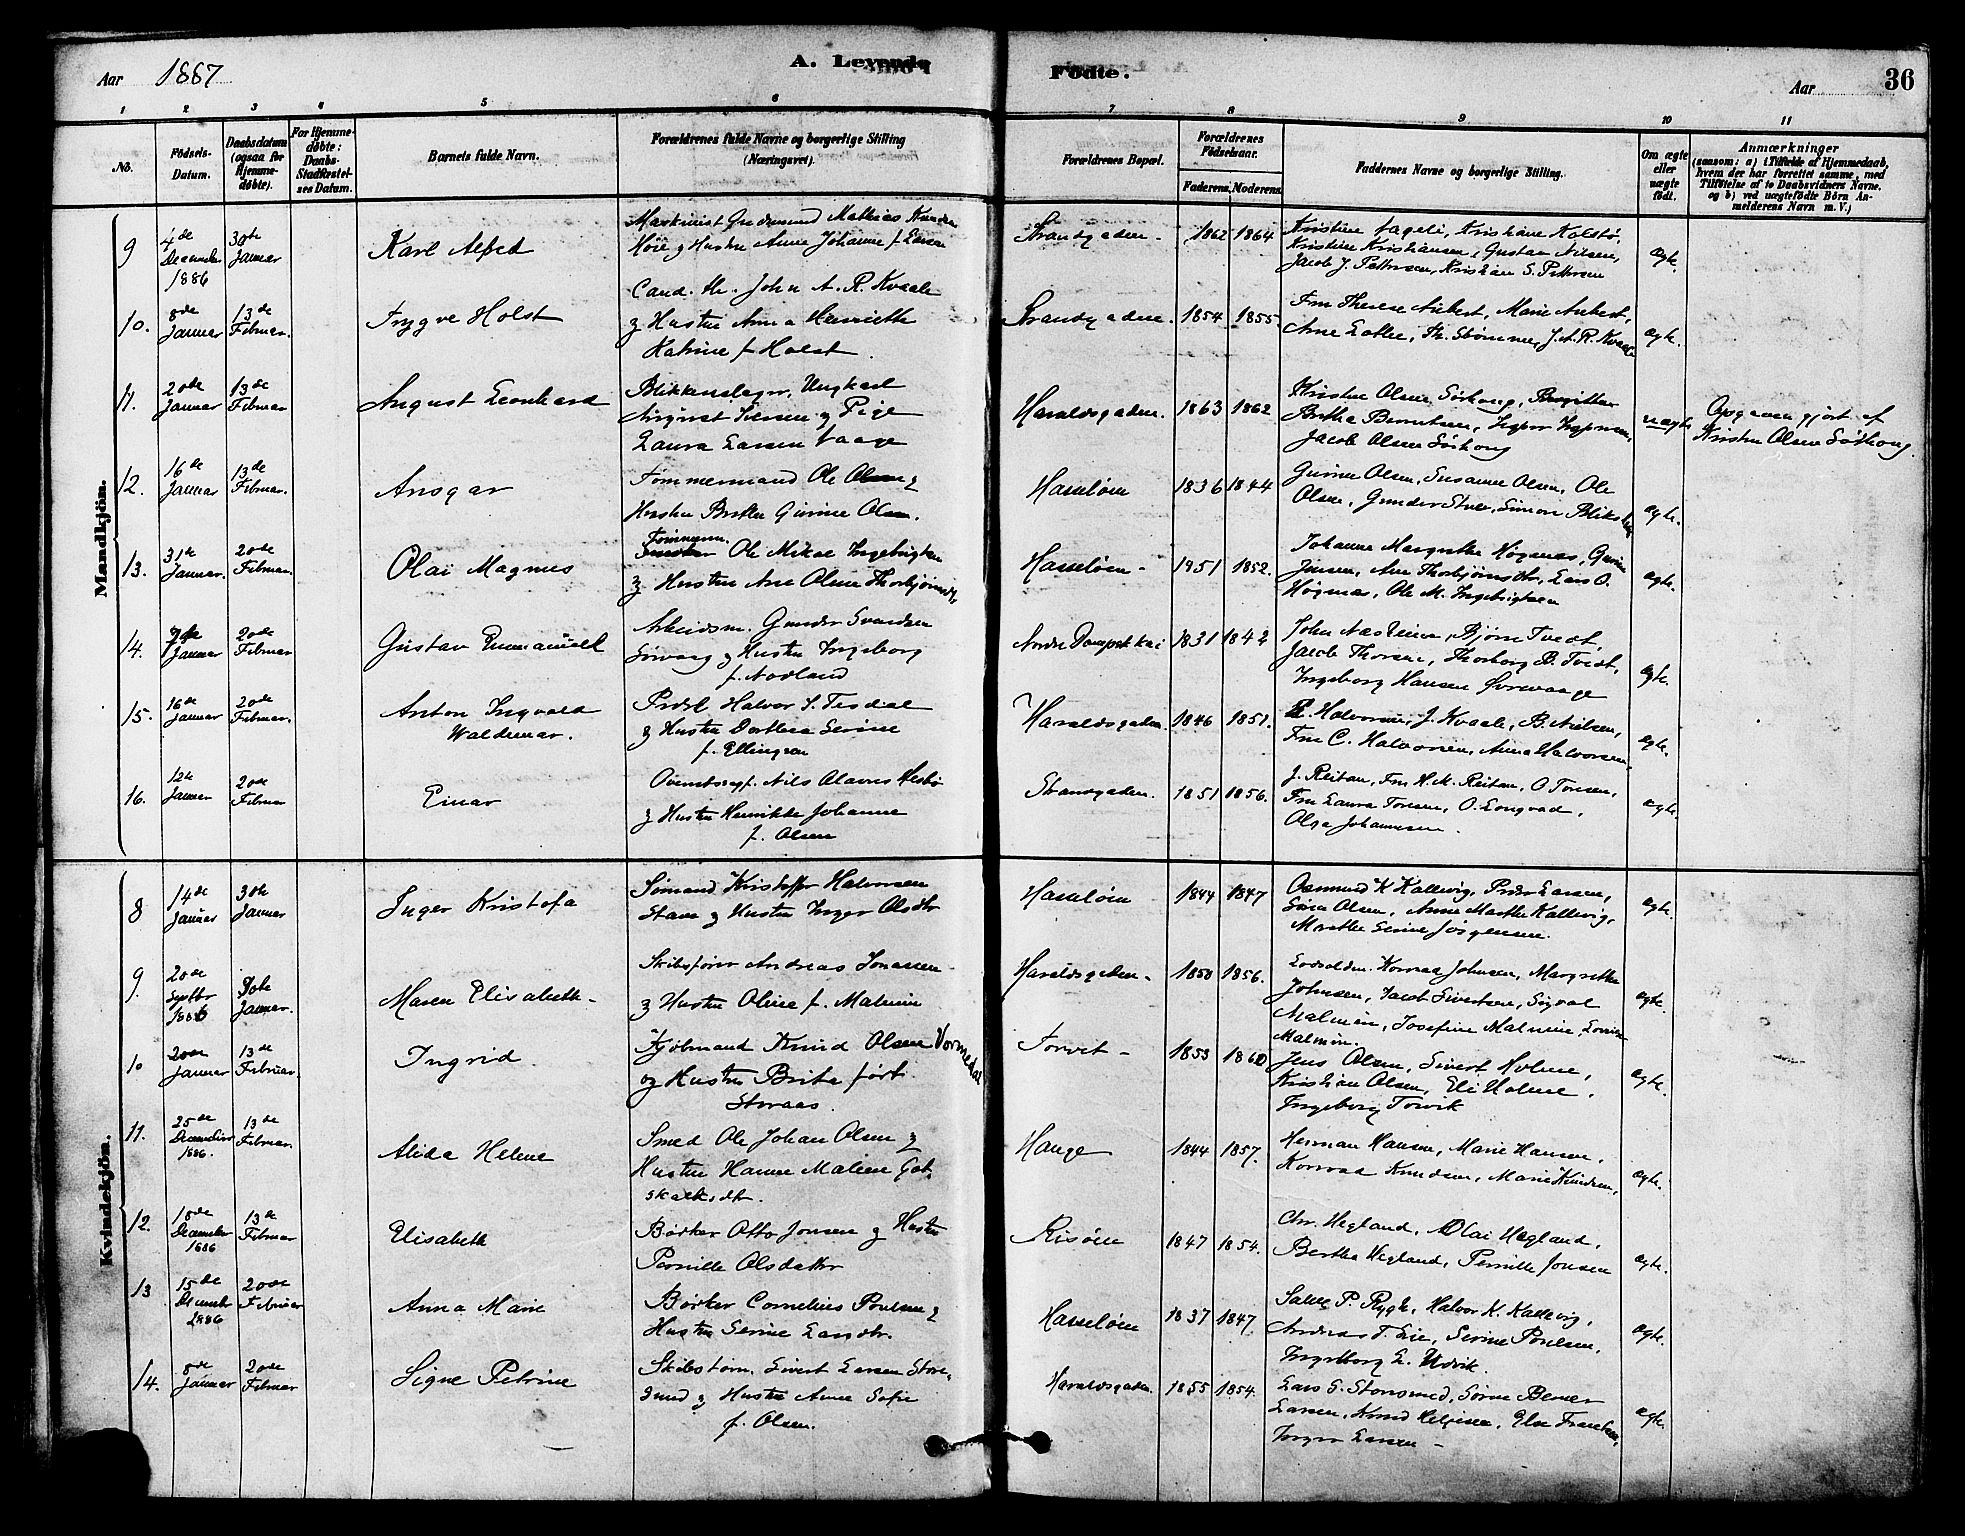 Aar 1887
A. Levende
Fødte.
Aar
36
1 2 3 4 5 6 7 8 9 10 11
No.
Födsels-Datum.
Daabsdatum (ogsaa for Hjemme-døbte).
For Hjemme-døbte: Daabs-Stadfæstel-ses Datum.
Barnets fulde Navn.
Forældrenes fulde Navne og borgerlige Stilling (Næringsvei).
Forældrenes Bopæl.
Forældrenes Fødselsaar.
Faderens. Moderens.
Faddernes Navne og borgerlige Stilling.
Om ægte eller uægte født.
Anmærkninger
(saasom: a) i Tilfælde af Hjemmedaab, hvem der har forrettet samme, med Tilføielse af to Daabsvidners Navne, og b) ved uægtefødte Børn An-melderens Navn m. V.)
Mandkjön.
9 4de December 1886 30te Januar Karl Alfred
Gudmund Mathias Knudsen
og Hustru Anne Johanne f. Larsen
Strandgaden 1862 1864
Kristian Kolstø,
Kristine Kristiansen, Gustav Nilsen,
Jacob J. Pettersen, Kristian S. Pettersen
ægte.
10. 8de Januar 13de Februar. Trygve Holst
Cand. th. John A. R. Kvaale
og Hustru Anna Henriette
Katrine f. Holst.
Strandgaden. 1854 1855.
Fru Therese Aubert, Marie Aubert,
J. A. R. Kvaale
ægte.
11. 20de Januar 13de Februar August Leonhard
Blikkenslager, Ungkarl
August Iversen og Pige
Laura Larsen Vaage
Haraldsgaden. 1863 1862
Kristen Olsen Sørhoug, Birgitte
Bertha Berentsen,
Jacob Olsen Sørhoug
uægte
Opgaven gjort af
Kristen Olsen Sørhoug.
12. 16de Januar 13de Februar. Ansgar
Tømmermand Ole Olsen og
Hustru Berthe Gurine Olsen.
Hasseløen 1836 1844
Gurine Olsen, Susanne Olsen, Ole
Olsen, Gunder Stue, Simon
ægte.
13. 31te Januar. 20de Februar. Olai Magnus
Tømmerm. Ole Mikal Ingebrigtsen
og Hustru Ane Oline Thorbjørnsdtr.
Hasseløen 1851 1852.
Johanne Margrethe Høgnæs,
Jensen, Ane Thorbjørnsdtr, Lars O.
Høgnæs, Ole M. Ingebrigtsen
ægte.
14. 7de Januar 20de Februar Gustav Emmanuel
Arbeidsm. Gunder Svendsen
Sørvaag og Hustru Ingeborg
f. Nodland
Nordre Dampsk. kai 1831 1842
Bjørn Tvedt,
Jacob Thorsen, Thorborg B. Tvedt,
Ingeborg Hansen
ægte.
15. 16de Januar 20de Februar. Anton Ingvald
Waldemar.
Halvor T. Tesdal
og Hustru Dorthea Serine
f. Ellingsen
Haraldsgaden 1846 1851.
Halvorsen, J. Kvaale, B. Nielsen,
Fru C. Halvorsen, Anna Halvorsen.
ægte.
16. 12te Januar 20de Februar Einar
Nils Olavus
og Hustru Henrikke Johanne
f. Olsen
Strandgaden. 1851 1856.
J. Reitan, Fru H. M. Reitan, O Tonsen,
Fru Laura Tonsen, O. Longvad,
Olga Johannesen.
ægte.
Kvindekjön.
8 14de Januar 30te Januar Inger Kristofa
Sømand Kristoffer Halvorsen
Stava og Hustru Inger Olsdtr
Hasseløen 1844 1847
Osmund K Kallevig, Peder Larsen,
Olsen, Anne Marthe Kallevig,
Marthe Serine Jørgensen.
ægte.
9. 20de Septbr 1886 30te Januar. Maren Elisabeth
Skibsfører Andreas Jonassen
og Hustru Oline f. Malmin
Haraldsgaden 1850 1856.
Konrad Johnsen, Margrethe
Johnsen, Jacob Sivertsen, Sigval
Malmin, Josefine Malmin,
Malmin.
ægte.
10 20de Januar 13de Februar. Ingrid
Kjøbmand Knud Olsen Vormedal
og Hustru Brita født
Straas.
Torvet 1855 1860
Jens Olsen, Sivert Holme,
Kristian Olsen, Eli Holme,
Ingeborg Torvik
ægte.
11. 25de December 1886. 13de Februar. Alida Helene
Smed Ole Johan Olsen og
Hustru Hanne Malene Got-
skalksdtr.
Hauge 1844 1857.
Herman Hansen, Marie Hansen,
Konrad Knudsen, Marie Knudsen,
ægte.
12. 18de December 1886 13de Februar Elisabeth
Bødker Otto Jonsen og Hustru
Pernille Olsdatter
Risøen 1847 1854.
Chr. Hegland, Olai Hegland,
Bertha Hegland, Pernille Jonsen
ægte.
13 15de December 1886 20de Februar Anna Marie
Bødker Cornelius Poulsen og
Hustru Serine Larsdtr.
Hasseløen 1837 1847
P. Rygh, Halvor K. Kallevig,
Andreas T. Lie, Serine Poulsen,
Ingeborg L. Udvik.
ægte.
14. 8de Januar 20de Februar Signe Petrine
Skibstøm. Sivert Larsen Store-
sund og Hustru Anne Sofie
f. Olsen.
Haraldsgaden. 1855 1854.
Lars S. Storesund, Sørine
Larsen, Knud Helgesen, Else
Larsen
ægte.